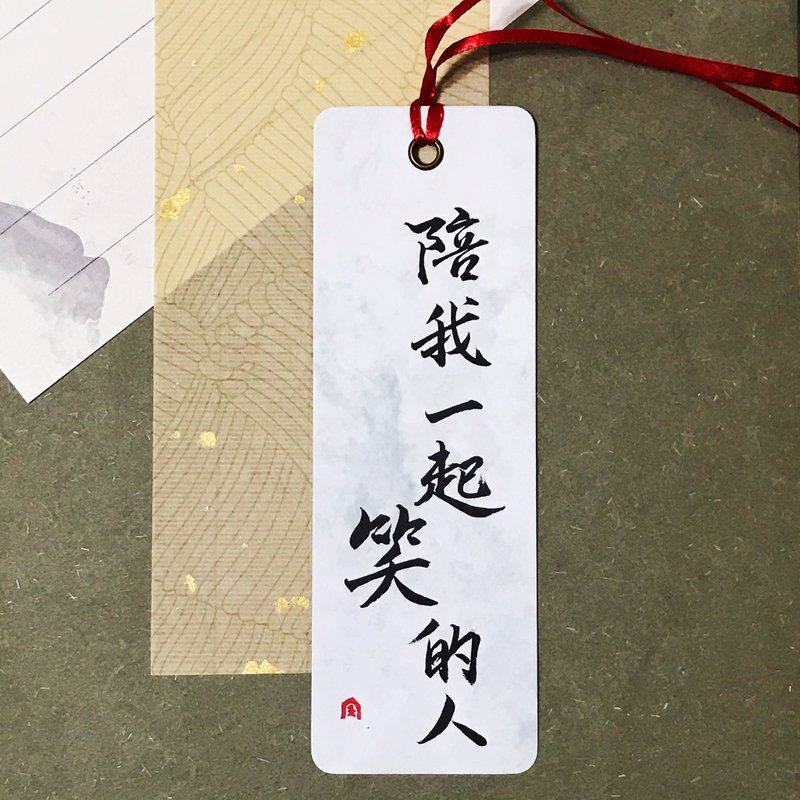 陪我一起笑的人